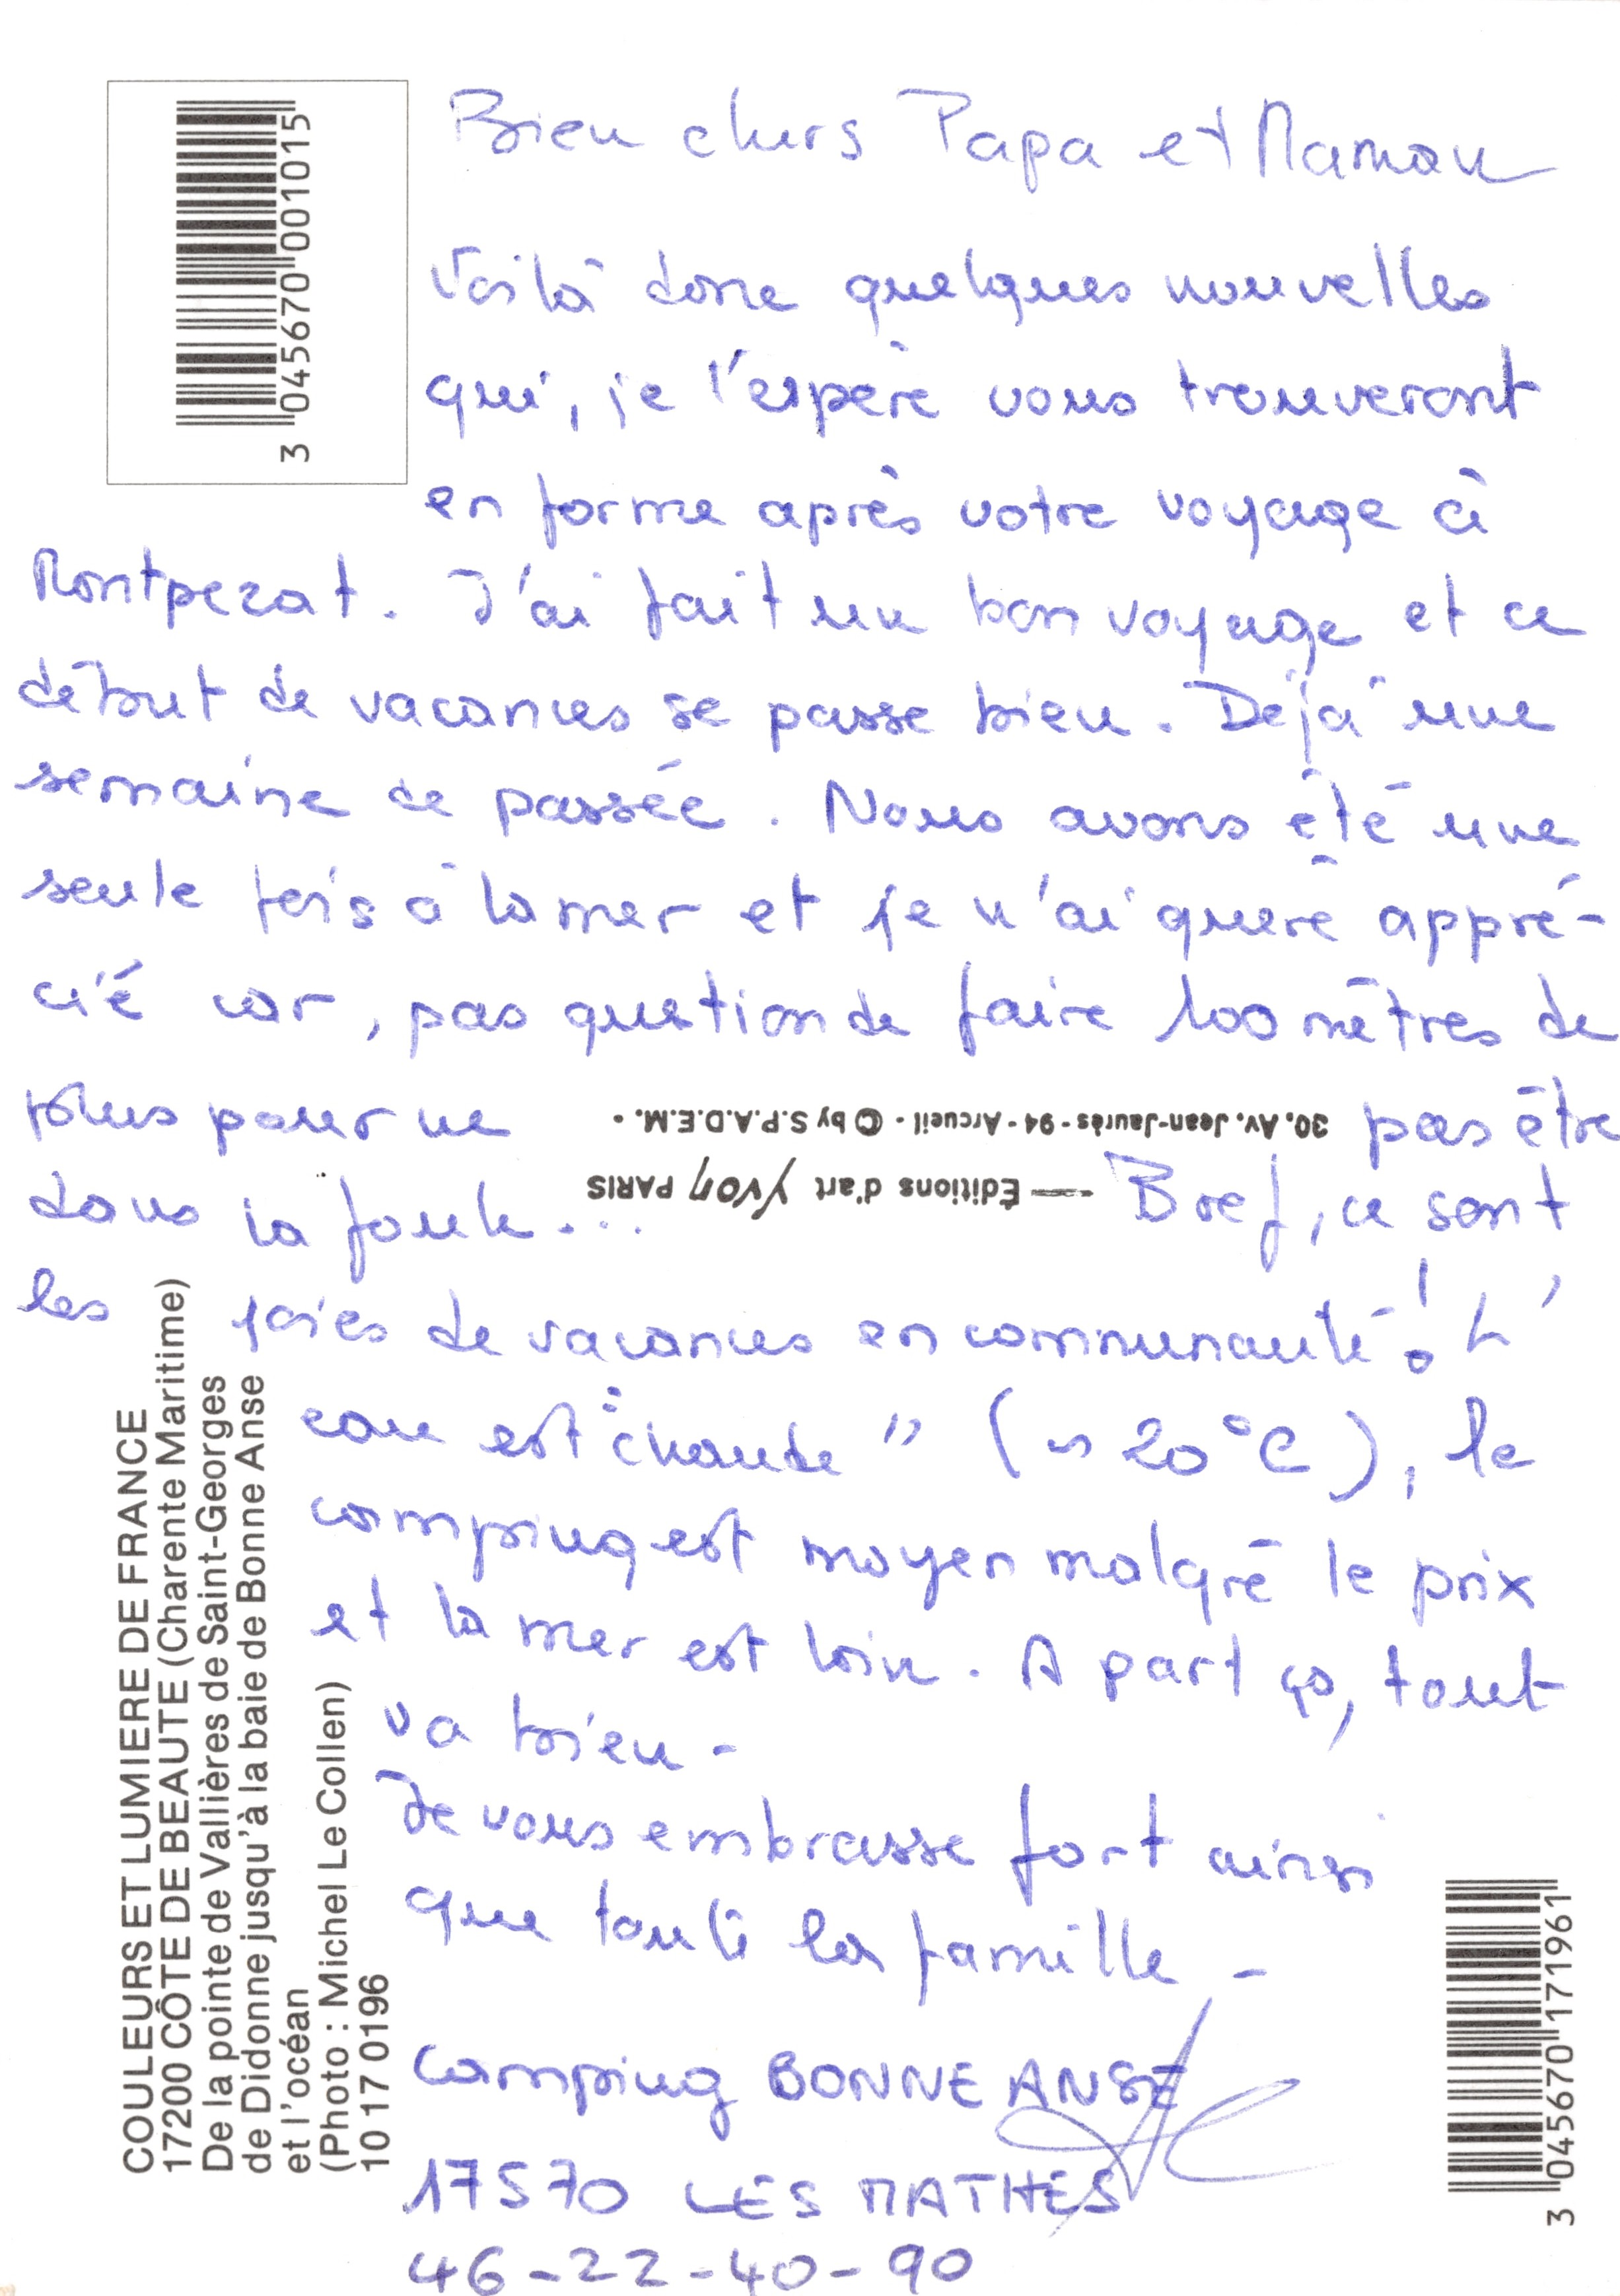 Bien chers Papa et Maman
Voilà donc quelques nouvelles
qui, je l'espère vous trouveront
en forme après votre voyage à
Montpezat. J'ai fait un bon voyage et ce
début de vacances se passe bien. Déjà une
semaine de passée. Nous avons été une
seule fois à la mer et je n'ai guère appré-
cié car, pas question de faire 100 mètres de
plus pour ne pas être
dans la foule... Bref, ce sont
les joies de vacances en communauté! L'
eau est "chaude" (~ 20°C), le
camping est moyen malgré le prix
et la mer est loin. A part ça, tout
va bien -
Je vous embrasse fort ainsi
que toute la famille -
Camping BONNE ANSE
17570 LES MATHES
46-22-40-90
3 045670 001015
30, Av. Jean-Jaurès - 94 - Arcueil - © by S.P.A.D.E.M. -
Editions d'art Yvon PARIS
COULEURS ET LUMIERE DE FRANCE
17200 CÔTE DE BEAUTE (Charente Maritime)
De la pointe de Vallières de Saint-Georges
de Didonne jusqu'à la baie de Bonne Anse
et l'océan
(Photo : Michel Le Collen)
10 17 0196
3 045670 171961